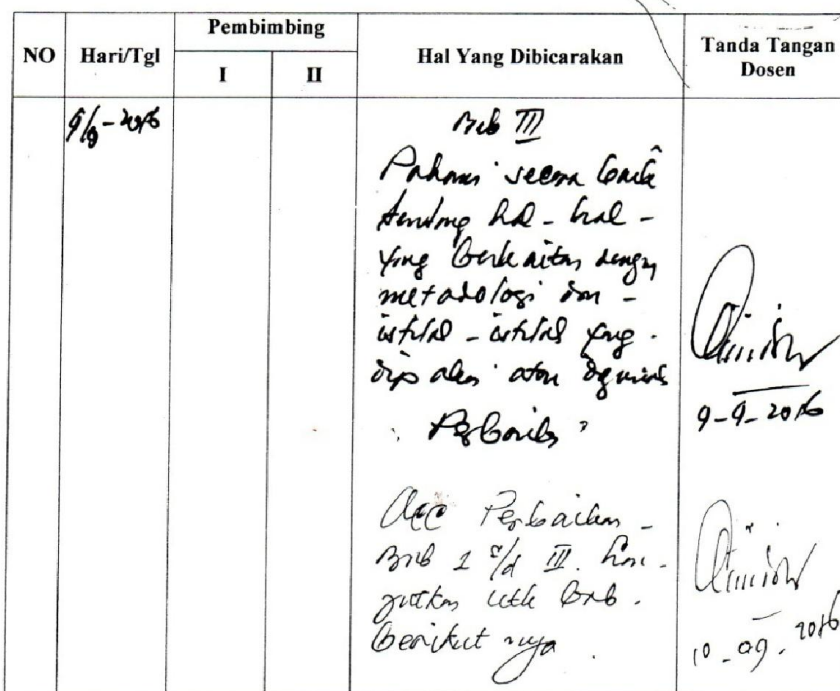 NO Hari/Tgl Pembimbing Hal Yang Dibicarakan Tanda Tangan Dosen
I II
9/9-2016
Bab III
Pahami secara baik
tentang hal-hal -
yang berkaitan dengan
metodologi dan -
istilah-istilah yang -
dipakai atau
Perbaiki
9-9-2016
Acc Perbaikan -
Bab 1 s/d III. Lan-
jutkan utk bab -
berikut nya.
10-09-2016